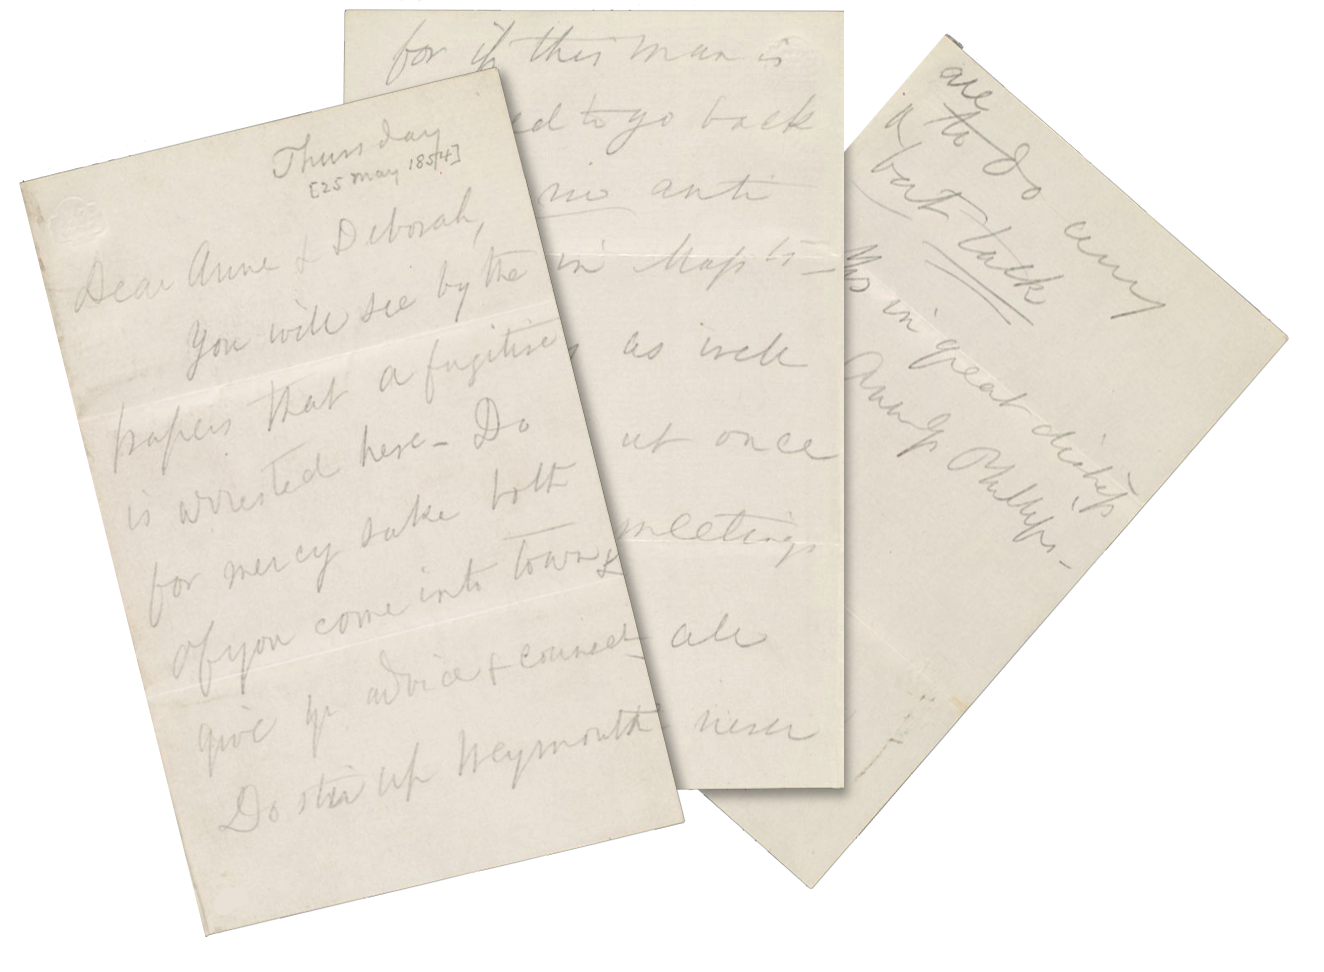 Thursday
[25 May 1854]
Dear Anne & Deborah,
You will see by the
papers that a fugitive
is arrested here - Do
for mercy sake both
of you come into town &
give yr advice & counsel
Do stir up Weymouth
for if this man is
ed to go back
no anti
in Mass ts -
as well
at once
meetings
all
never
are
to do any
but talk
in great distress
Ann G Phillips -